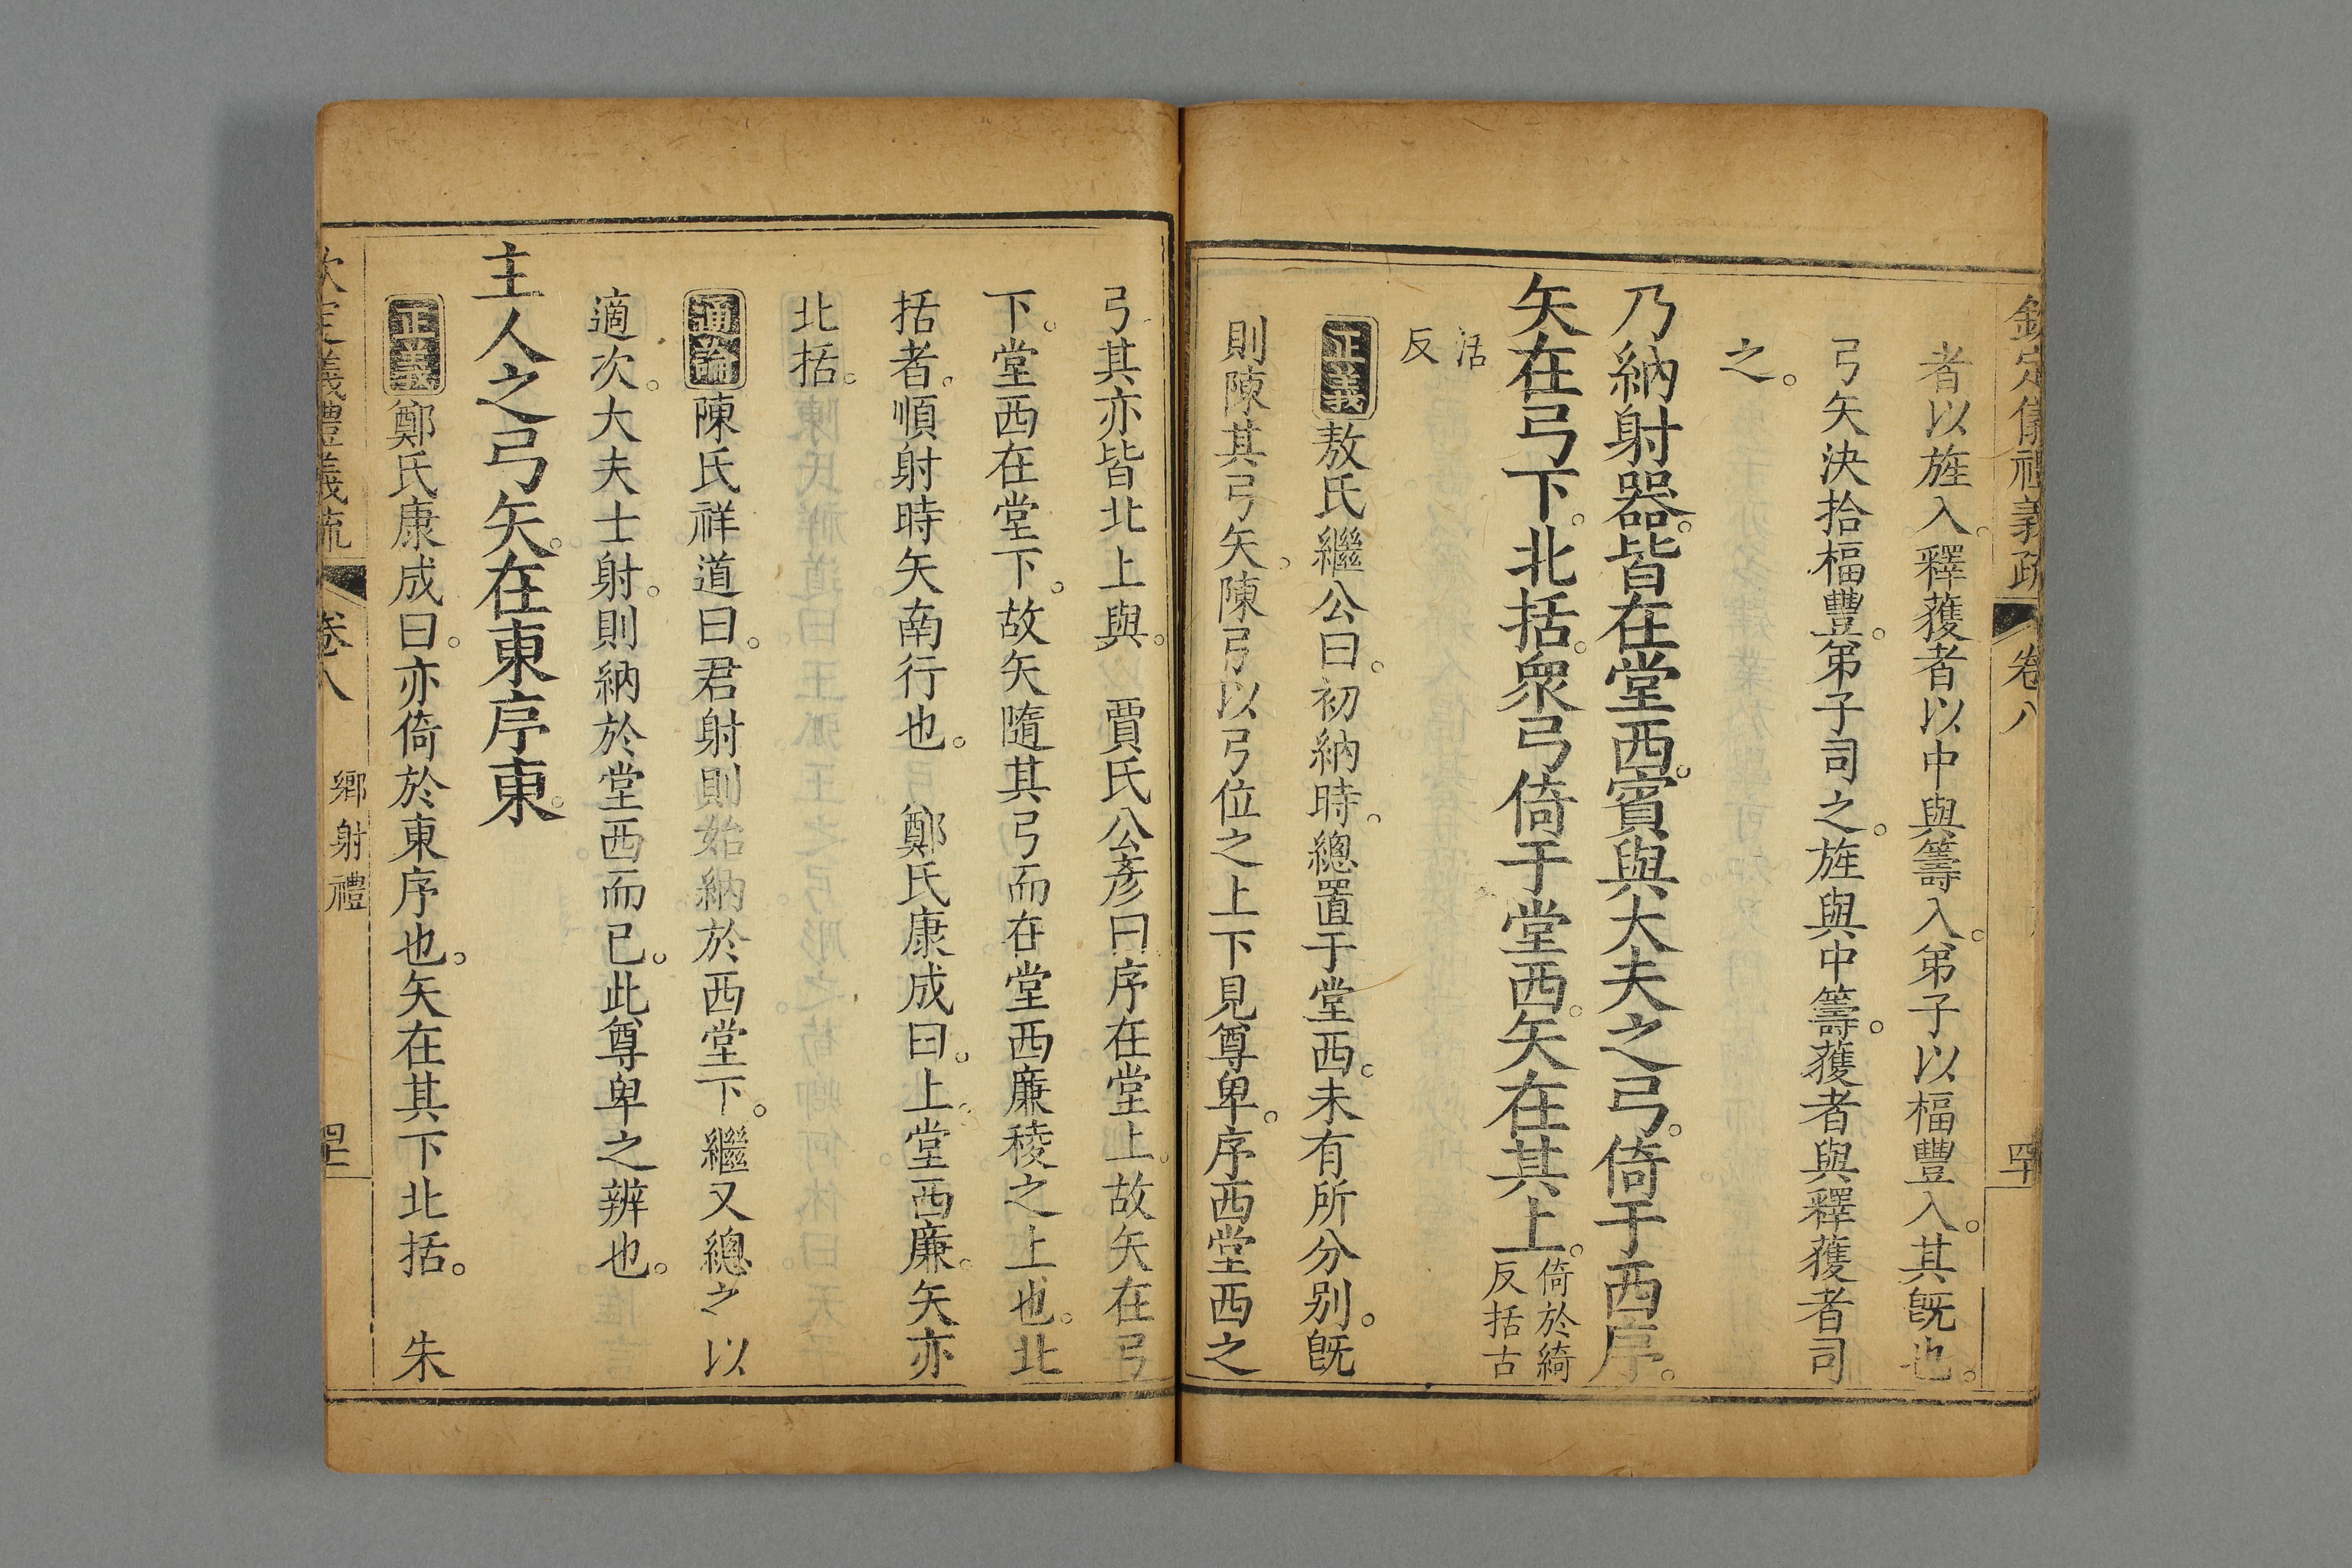 欽定儀禮義疏 卷八 四十
者以旌入。釋獲者以中與籌入。弟子以楅豐入。其旣也。
弓矢決拾楅豐。弟子司之。旌與中籌。獲者與釋獲者司
之。
乃納射器。皆在堂西。賓與大夫之弓。倚于西序。
矢在弓下。北括。衆弓倚于堂西。矢在其上。倚於綺反括古
活反
正義敖氏繼公曰。初納時。總置于堂西。未有所分別。旣
則陳其弓矢。陳弓以弓位之上下見尊卑。序西堂西之
弓其亦皆北上與。 賈氏公彥曰序在堂上。故矢在弓
下。堂西在堂下。故矢隨其弓而在堂西廉稜之上也。北
括者。順射時矢南行也。 鄭氏康成曰。上堂西廉。矢亦
北括。
通論陳氏祥道曰。君射則始納於西堂下。繼又總之以
適次。大夫士射。則納於堂西而已。此尊卑之辨也。
主人之弓矢。在東序東。
正義鄭氏康成曰。亦倚於東序也。矢在其下北括。 朱
欽定義禮義疏 卷八 鄉射禮